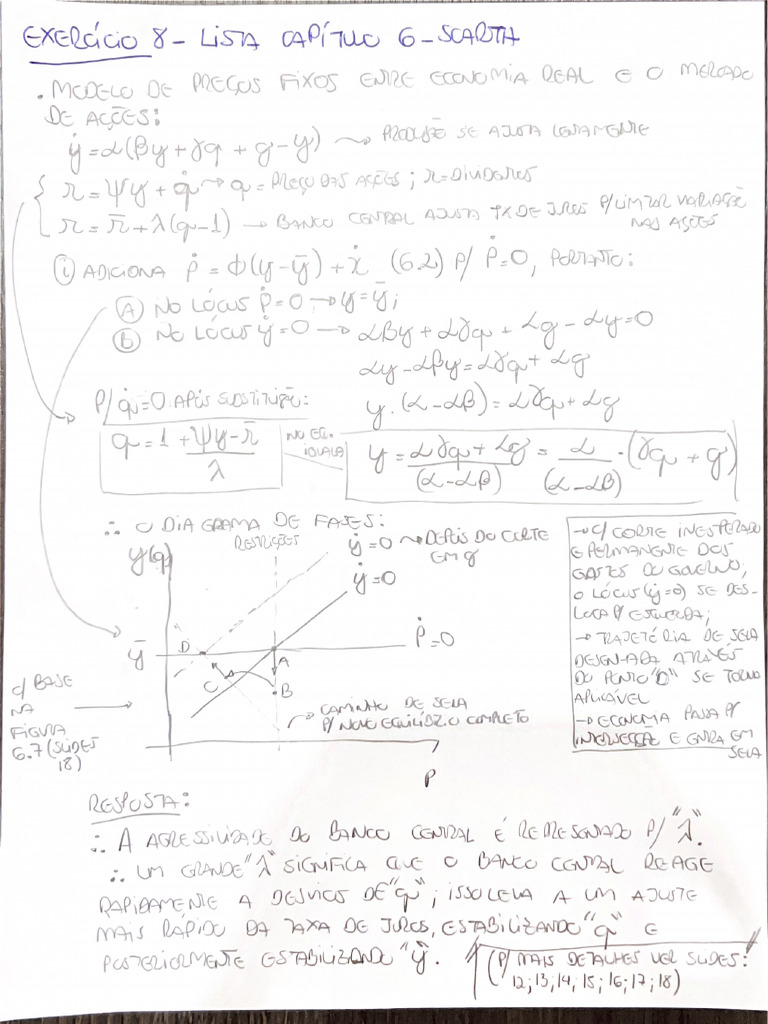 EXERCÍCIO 8 - LISTA CAPÍTULO 6 - SCARTH
. MODELO DE PREÇOS FIXOS ENTRE ECONOMIA REAL E O MERCADO
DE AÇÕES:
ẏ = α(βy + γq + g - y) → PRODUÇÃO SE AJUSTA LENTAMENTE
r = ψy + q̇ → q = PREÇO DAS AÇÕES; r = DIVIDENDOS
r = r̄ + λ(q-1) → BANCO CENTRAL AJUSTA TX DE JUROS P/ LIMITAR VARIAÇÃO
NAS AÇÕES
(i) ADICIONA Ṗ = Φ(y - ȳ) + ẋ (6.2) P/ Ṗ = 0, PORTANTO:
(A) NO LÓCUS Ṗ = 0 → y = ȳ;
(B) NO LÓCUS ẏ = 0 → αβy + αγq + αg - αy = 0
αy - αβy = αγq + αg
P/ q̇ = 0 APÓS SUBSTITUIÇÃO:
y.(α - αβ) = αγq + αg
q = 1 + (ψy - r̄)/λ
NO EQ. IGUALA
y = (αγq + αg)/(α - αβ) = α/(α - αβ) · (γq + g)
∴ O DIAGRAMA DE FASES:
RESTRIÇÕES
y(q)
ẏ = 0 → DEPOIS DO CORTE
EM g
ẏ = 0
ȳ
D
A
Ṗ = 0
C
B
CAMINHO DE SELA
P/ NOVO EQUILÍBRIO COMPLETO
P
C/ BASE
NA
FIGURA
6.7 (SLIDES
18)
→ C/ CORTE INESPERADO
E PERMANENTE DOS
GASTOS DO GOVERNO,
O LÓCUS (ẏ = 0) SE DES-
LOCA P/ ESQUERDA;
→ TRAJETÓRIA DE SELA
DESENHADA ATRAVÉS
DO PONTO "D" SE TORNA
APLICÁVEL
→ ECONOMIA PASSA P/
INTERSECÇÃO E ENTRA EM
SELA
RESPOSTA:
∴ A AGRESSILIDADE DO BANCO CENTRAL É REPRESENTADO P/ "λ".
∴ UM GRANDE "λ" SIGNIFICA QUE O BANCO CENTRAL REAGE
RAPIDAMENTE A DESVIOS DE "q"; ISSO LEVA A UM AJUSTE
MAIS RÁPIDO DA TAXA DE JUROS, ESTABILIZANDO "q" E
POSTERIORMENTE ESTABILIZANDO "ȳ".
(P/ MAIS DETALHES VER SLIDES:
12; 13; 14; 15; 16; 17; 18)